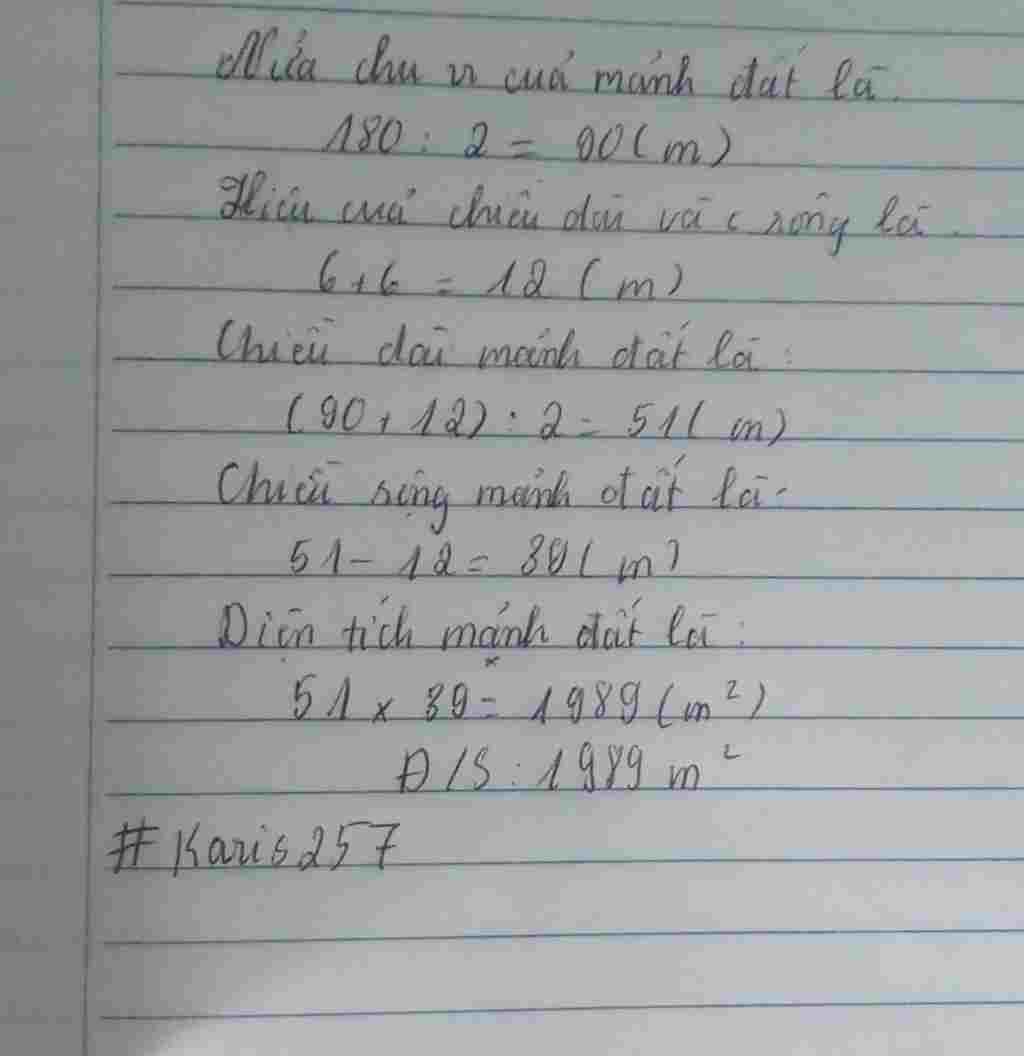 Nửa chu vi của mảnh đất là.
180 : 2 = 90 (m)
Hiệu của chiều dài và c rộng là.
6 + 6 = 12 (m)
Chiều dài mảnh đất là:
(90 + 12) : 2 = 51 (m)
Chiều rộng mảnh đất là.
51 - 12 = 39 (m)
Diện tích mảnh đất là:
51 x 39 = 1989 (m²)
Đ/S : 1989 m²
#Karis257